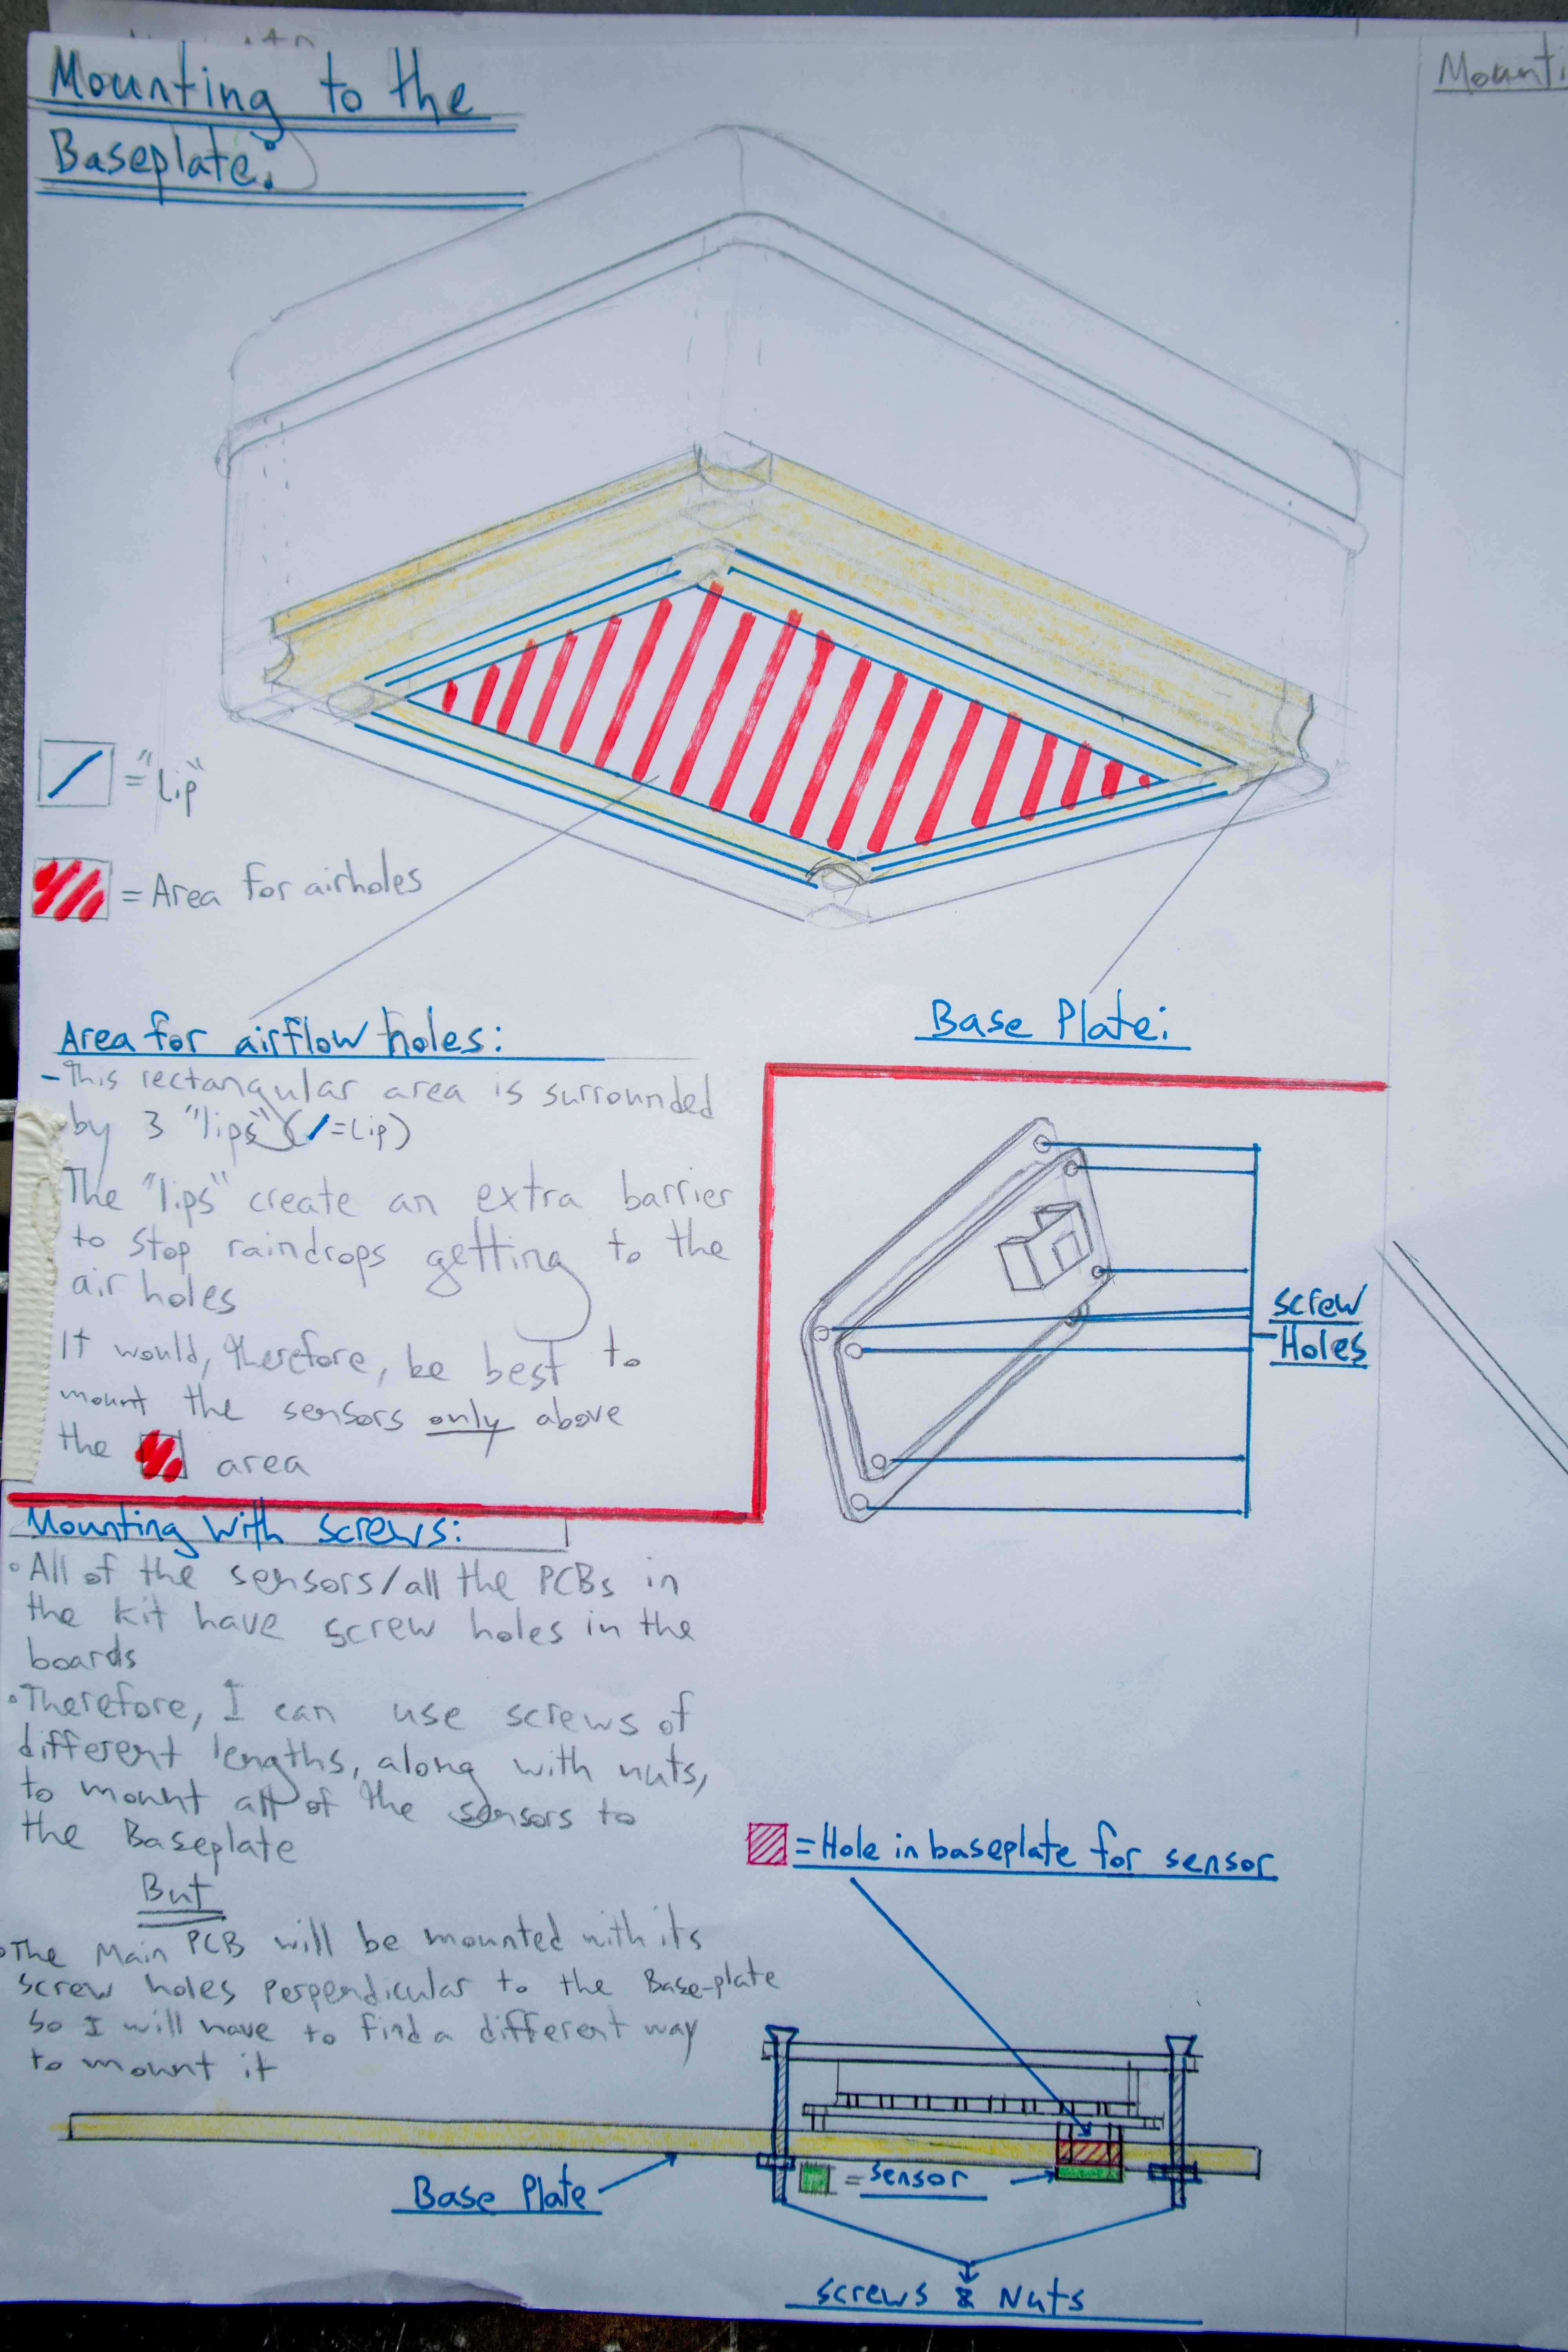 Mounting to the
Baseplate:
Mounti
= "Lip"
= Area for airholes
Area for airflow holes:
- This rectangular area is surrounded
by 3 "lips" ( / = Lip)
The "lips" create an extra barrier
to stop raindrops getting to the
air holes
It would, therefore, be best to
mount the sensors only above
the area
Base Plate:
screw
Holes
Mounting with screws:
• All of the sensors/all the PCBs in
the kit have screw holes in the
boards
• Therefore, I can use screws of
different lengths, along with nuts,
to mount all of the sensors to
the Baseplate
But
• The Main PCB will be mounted with its
screw holes perpendicular to the Base-plate
So I will have to find a different way
to mount it
= Hole in baseplate for sensor
= sensor
Base Plate
screws & Nuts